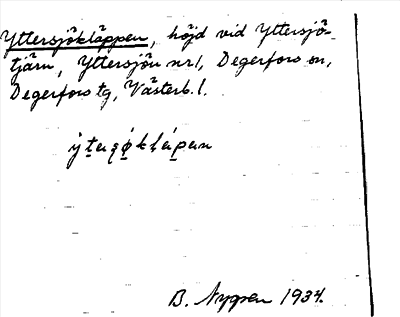 Yttersjökläppen, höjd vid Yttersjö-
tjärn, Yttersjön nr 1, Degerfors sn,
Degerfors tg, Västerb. l.
B. Nygren 1934.